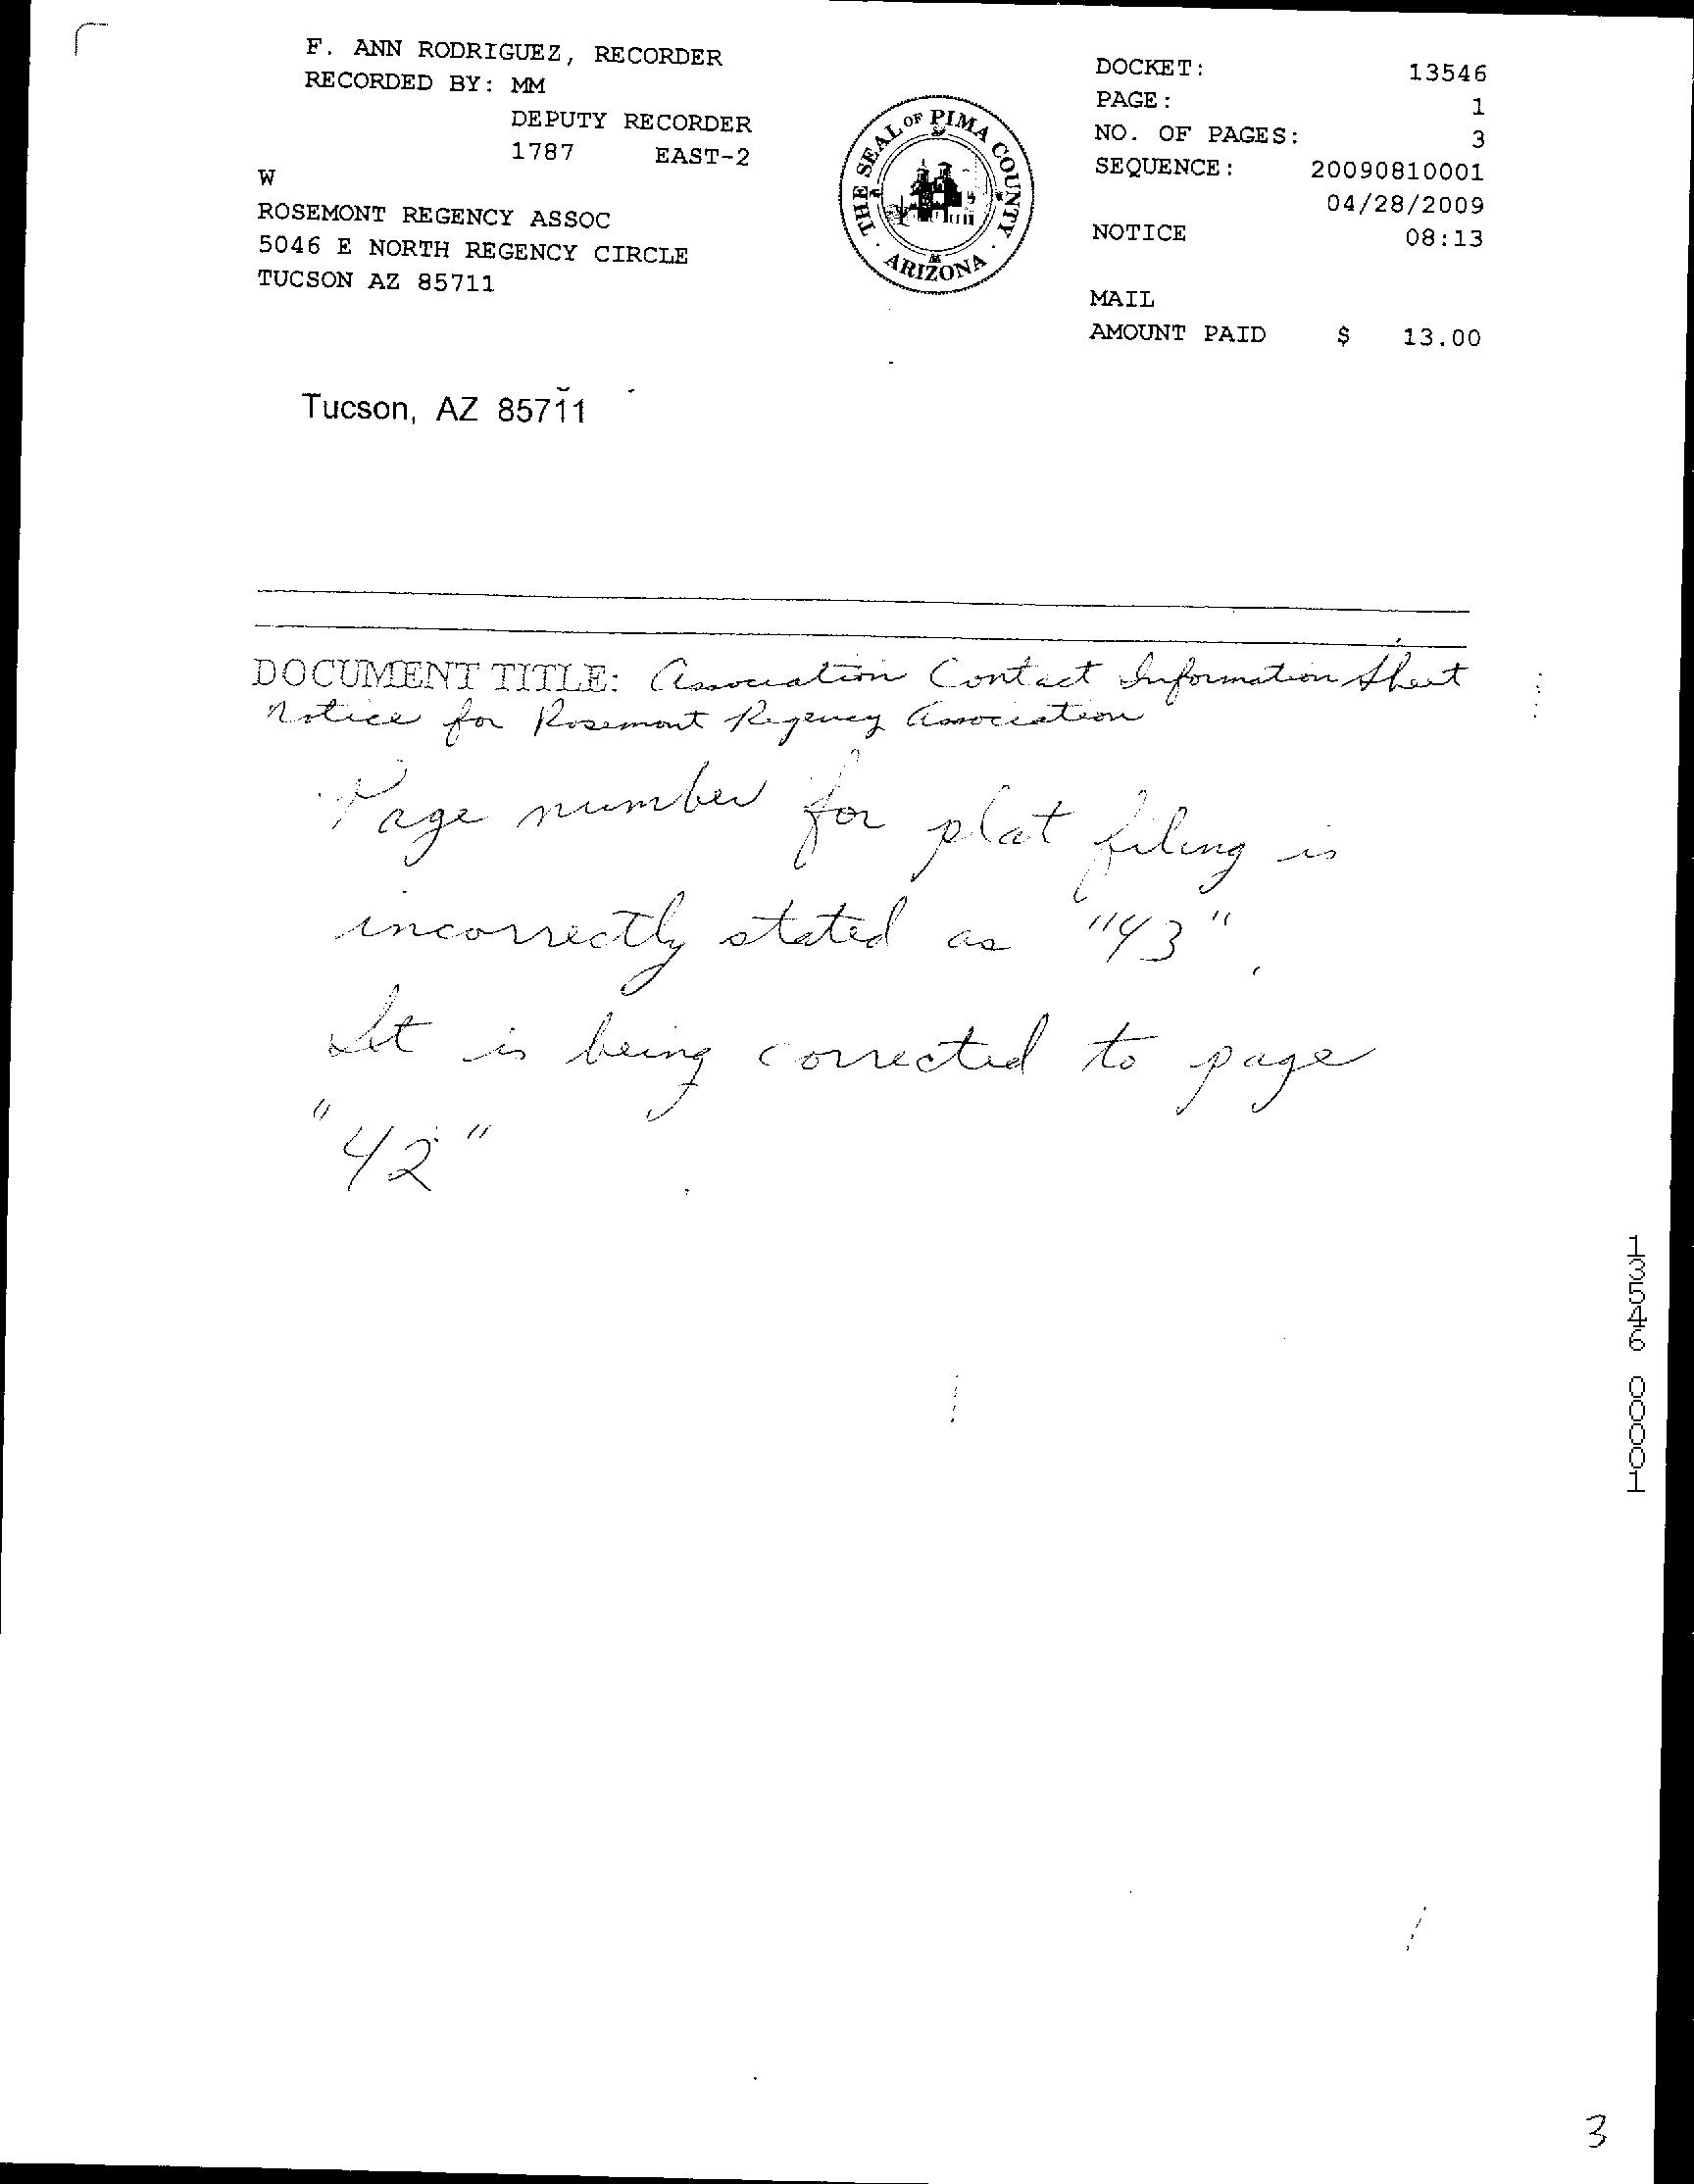 F. ANN RODRIGUEZ, RECORDER
RECORDED BY: MM
DEPUTY RECORDER
1787 EAST-2
W
ROSEMONT REGENCY ASSOC
5046 E NORTH REGENCY CIRCLE
TUCSON AZ 85711
THE SEAL OF PIMA COUNTY
ARIZONA
DOCKET: 13546
PAGE: 1
NO. OF PAGES: 3
SEQUENCE: 20090810001
04/28/2009
NOTICE 08:13
MAIL
AMOUNT PAID $ 13.00
Tucson, AZ 85711
DOCUMENT TITLE: Association Contact Information Sheet
Notice for Rosemont Regency Association
Page number for plat filing is
incorrectly stated as "43".
It is being corrected to page
"42"
13546 00001
3